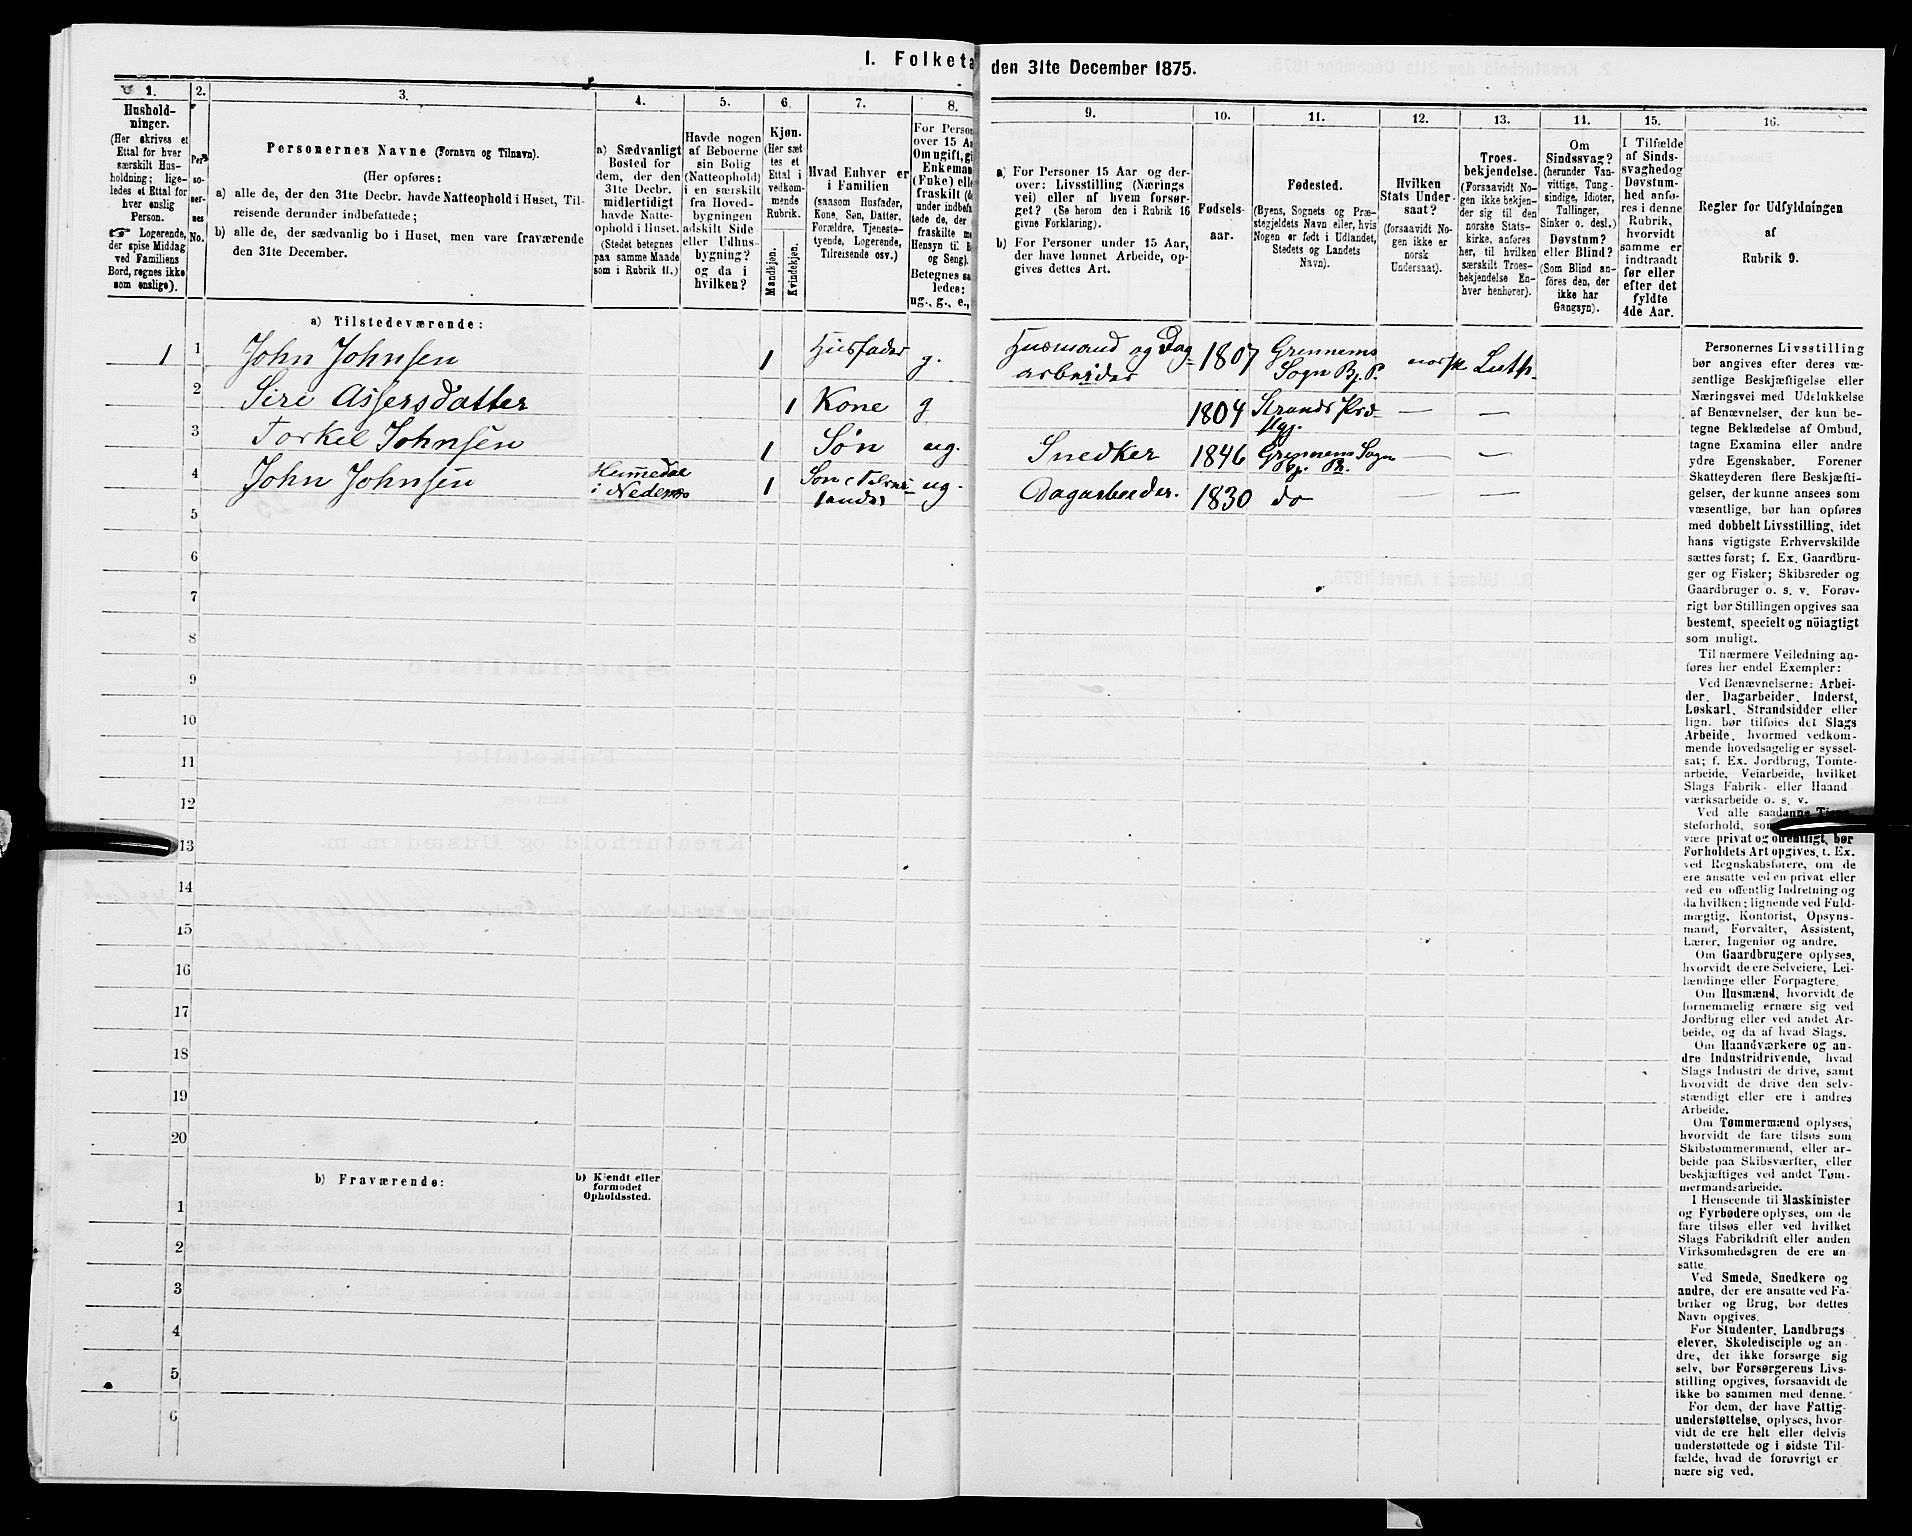 1. Folketa
den 31te December 1875.
1.
Hushold-
ninger.
(Her skrives et
Ettal for hver
særskilt Hus-
holdning; lige-
ledes et Ettal for
hver enslig
Person.
☞ Logerende,
der spise Middag
ved Familiens
Bord, regnes ikke
som enslige).
2.
Per-
so-
ner-
nes
No.
3.
Personernes Navne (Fornavn og Tilnavn).
(Her opføres:
a) alle de, der den 31te Decbr. havde Natteophold i Huset, Til-
reisende derunder indbefattede;
b) alle de, der sædvanlig bo i Huset, men vare fraværende
den 31te December.
4.
a) Sædvanligt
Bosted for
dem, der den
31te Decbr.
midlertidigt
havde Natte-
ophold i Huset.
(Stedet betegnes
paa samme Maade
som i Rubrik 11.)
5.
Havde nogen
af Beboerne
sin Bolig
(Natteophold)
i en særskilt
fra Hoved-
bygningen
adskilt Side
eller Udhus-
bygning?
og da i
hvilken?
6.
Kjøn.
(Her sæt-
tes et
Ettal i
vedkom-
mende
Rubrik.
Mandkjøn.
Kvindekjøn.
7.
Hvad Enhver er
i Familien
(saasom Husfader,
Kone, Søn, Datter,
Forældre, Tjeneste-
tyende, Logerende,
Tilreisende osv.)
8.
For Person
over 15 Aa
Om ugift, gi
Enkeman
(Enke) ell
fraskilt (d
under indbef
tede de, der
fraskilte m
Hensyn til B
og Seng).
Betegnes sa
ledes:
ug., g., e.,
9.
a) For Personer 15 Aar og der-
over: Livsstilling (Nærings
vei) eller af hvem forsør-
get? (Se herom den i Rubrik 16
givne Forklaring).
b) For Personer under 15 Aar,
der have lønnet Arbeide, op-
gives dettes Art.
10.
Fødsels-
aar.
11.
Fødested.
(Byens, Sognets og Præ-
stegjeldets Navn eller, hvis
Nogen er født i Udlandet,
Stedets og Landets
Navn).
12.
Hvilken
Stats Under-
saat?
(forsaavidt No-
gen ikke er
norsk
Undersaat).
13.
Troes-
bekjendelse.
(Forsaavidt No-
gen ikke bekjen-
der sig til den
norske Stats-
kirke, anføres
her, til hvilken
særskilt Troes-
bekjendelse En-
hver henhører).
14.
Om
Sindssvag?
(herunder Van-
vittige, Tung-
sindige, Idioter,
Tullinger,
Sinker o. desl.)
Døvstum?
eller Blind?
(Som Blind an-
føres den, der
ikke har
Gangsyn).
15.
I Tilfælde
af Sinds-
svaghedog
Døvstum-
hed anfø-
res i denne
Rubrik,
hvorvidt
samme er
indtraadt
før eller
efter det
fyldte
4de Aar.
16.
Regler for Udfyldningen
af
Rubrik 9.
a) Tilstedeværende:
1 1 John Johnsen 1 Husfader g. Husmand og Dag-
arbeider 1807 Grennems
Sogn Bj. P. norsk Luth.
2 Siri Assersdatter 1 Kone g 1804 Strands Præ
stgj. — —
3 Torkel Johnsen 1 Søn ug. Snedker 1846 Grennems Sogn
Bj. Pr. — —
4 John Johnsen
i Nedenes 1 Søn ug. Dagarbeider. 1830 do — —
5
6
7
8
9
10
11
12
13
14
15
16
17
18
19
20
b) Fraværende:
b) Kjendt eller
formodet
Opholdssted.
1
2
3
4
5
6
Personernes Livsstilling
bør angives efter deres væ-
sentlige Beskjæftigelse eller
Næringsvei med Udelukkelse
af Benævnelser, der kun be-
tegne Beklædelse af Ombud,
tagne Examina eller andre
ydre Egenskaber. Forener
Skatteyderen flere Beskjæfti-
gelser, der kunne ansees som
væsentlige, bør han opføres
med dobbelt Livsstilling, idet
hans vigtigste Erhvervskilde
sættes først; f. Ex. Gaardbru-
ger og Fisker; Skibsreder og
Gaardbruger o. s. v. Forøv-
rigt bør Stillingen opgives saa
bestemt, specielt og nöiagtigt
som muligt.
Til nærmere Veiledning an-
føres her endel Exempler:
Ved Benævnelserne: Arbei-
der, Dagarbeider, Inderst,
Løskarl, Strandsidder eller
lign. bør tilføies det Slags
Arbeide, hvormed vedkom-
mende hovedsagelig er syssel-
sat; f. Ex. Jordbrug, Tomte-
arbeide, Veiarbeide, hvilket
Slags Fabrik- eller Haand-
værksarbeide o. s. v.
Ved alle saadanne
steforhold,
være privat og offentligt, bør
Forholdets Art opgives, t. Ex.
ved Regnskabsførere, om de
ere ansatte ved en privat eller
ved en offentlig Indretning og
da hvilken; lignende ved Fuld-
mægtig, Kontorist, Opsyns-
mand, Forvalter, Assistent,
Lærer, Ingeniør og andre.
Om Gaardbrugere oplyses,
hvorvidt de ere Selveiere, Lei-
lændinge eller Forpagtere.
Om Husmænd, hvorvidt de
fornemmelig ernære sig ved
Jordbrug eller ved andet Ar-
beide, og da af hvad Slags.
Om Haandværkere og an-
dre Industridrivende, hvad
Slags Industri de drive, samt
hvorvidt de drive den selv-
stændigt eller ere i andres
Arbeide.
Om Tømmermænd oplyses,
hvorvidt de fare tilsøs som
Skibstømmermænd, eller ar-
beide paa Skibsværfter, eller
beskjæftiges ved andet Tøm-
mermandsarbeide.
I Henseende til Maskinister
og Fyrbødere oplyses, om de
fare tilsøs eller ved hvilket
Slags Fabrikdrift eller anden
Virksomhedsgren de ere an-
satte.
Ved Smede, Snedkere og
andre, der ere ansatte ved Fa-
briker og Brug, bør dettes
Navn opgives.
For Studenter, Landbrugs-
elever, Skoledisciple og an-
dre, der ikke forsørge sig
selv, bør Forsørgerens Livs-
stilling opgives, forsaavidt de
ikke bo sammen med denne.
For dem, der have Fattig-
understøttelse, oplyses, hvor-
vidt de ere helt eller delvis
understøttede og i sidste Til-
fælde, hvad de forøvrigt er-
nære sig ved.